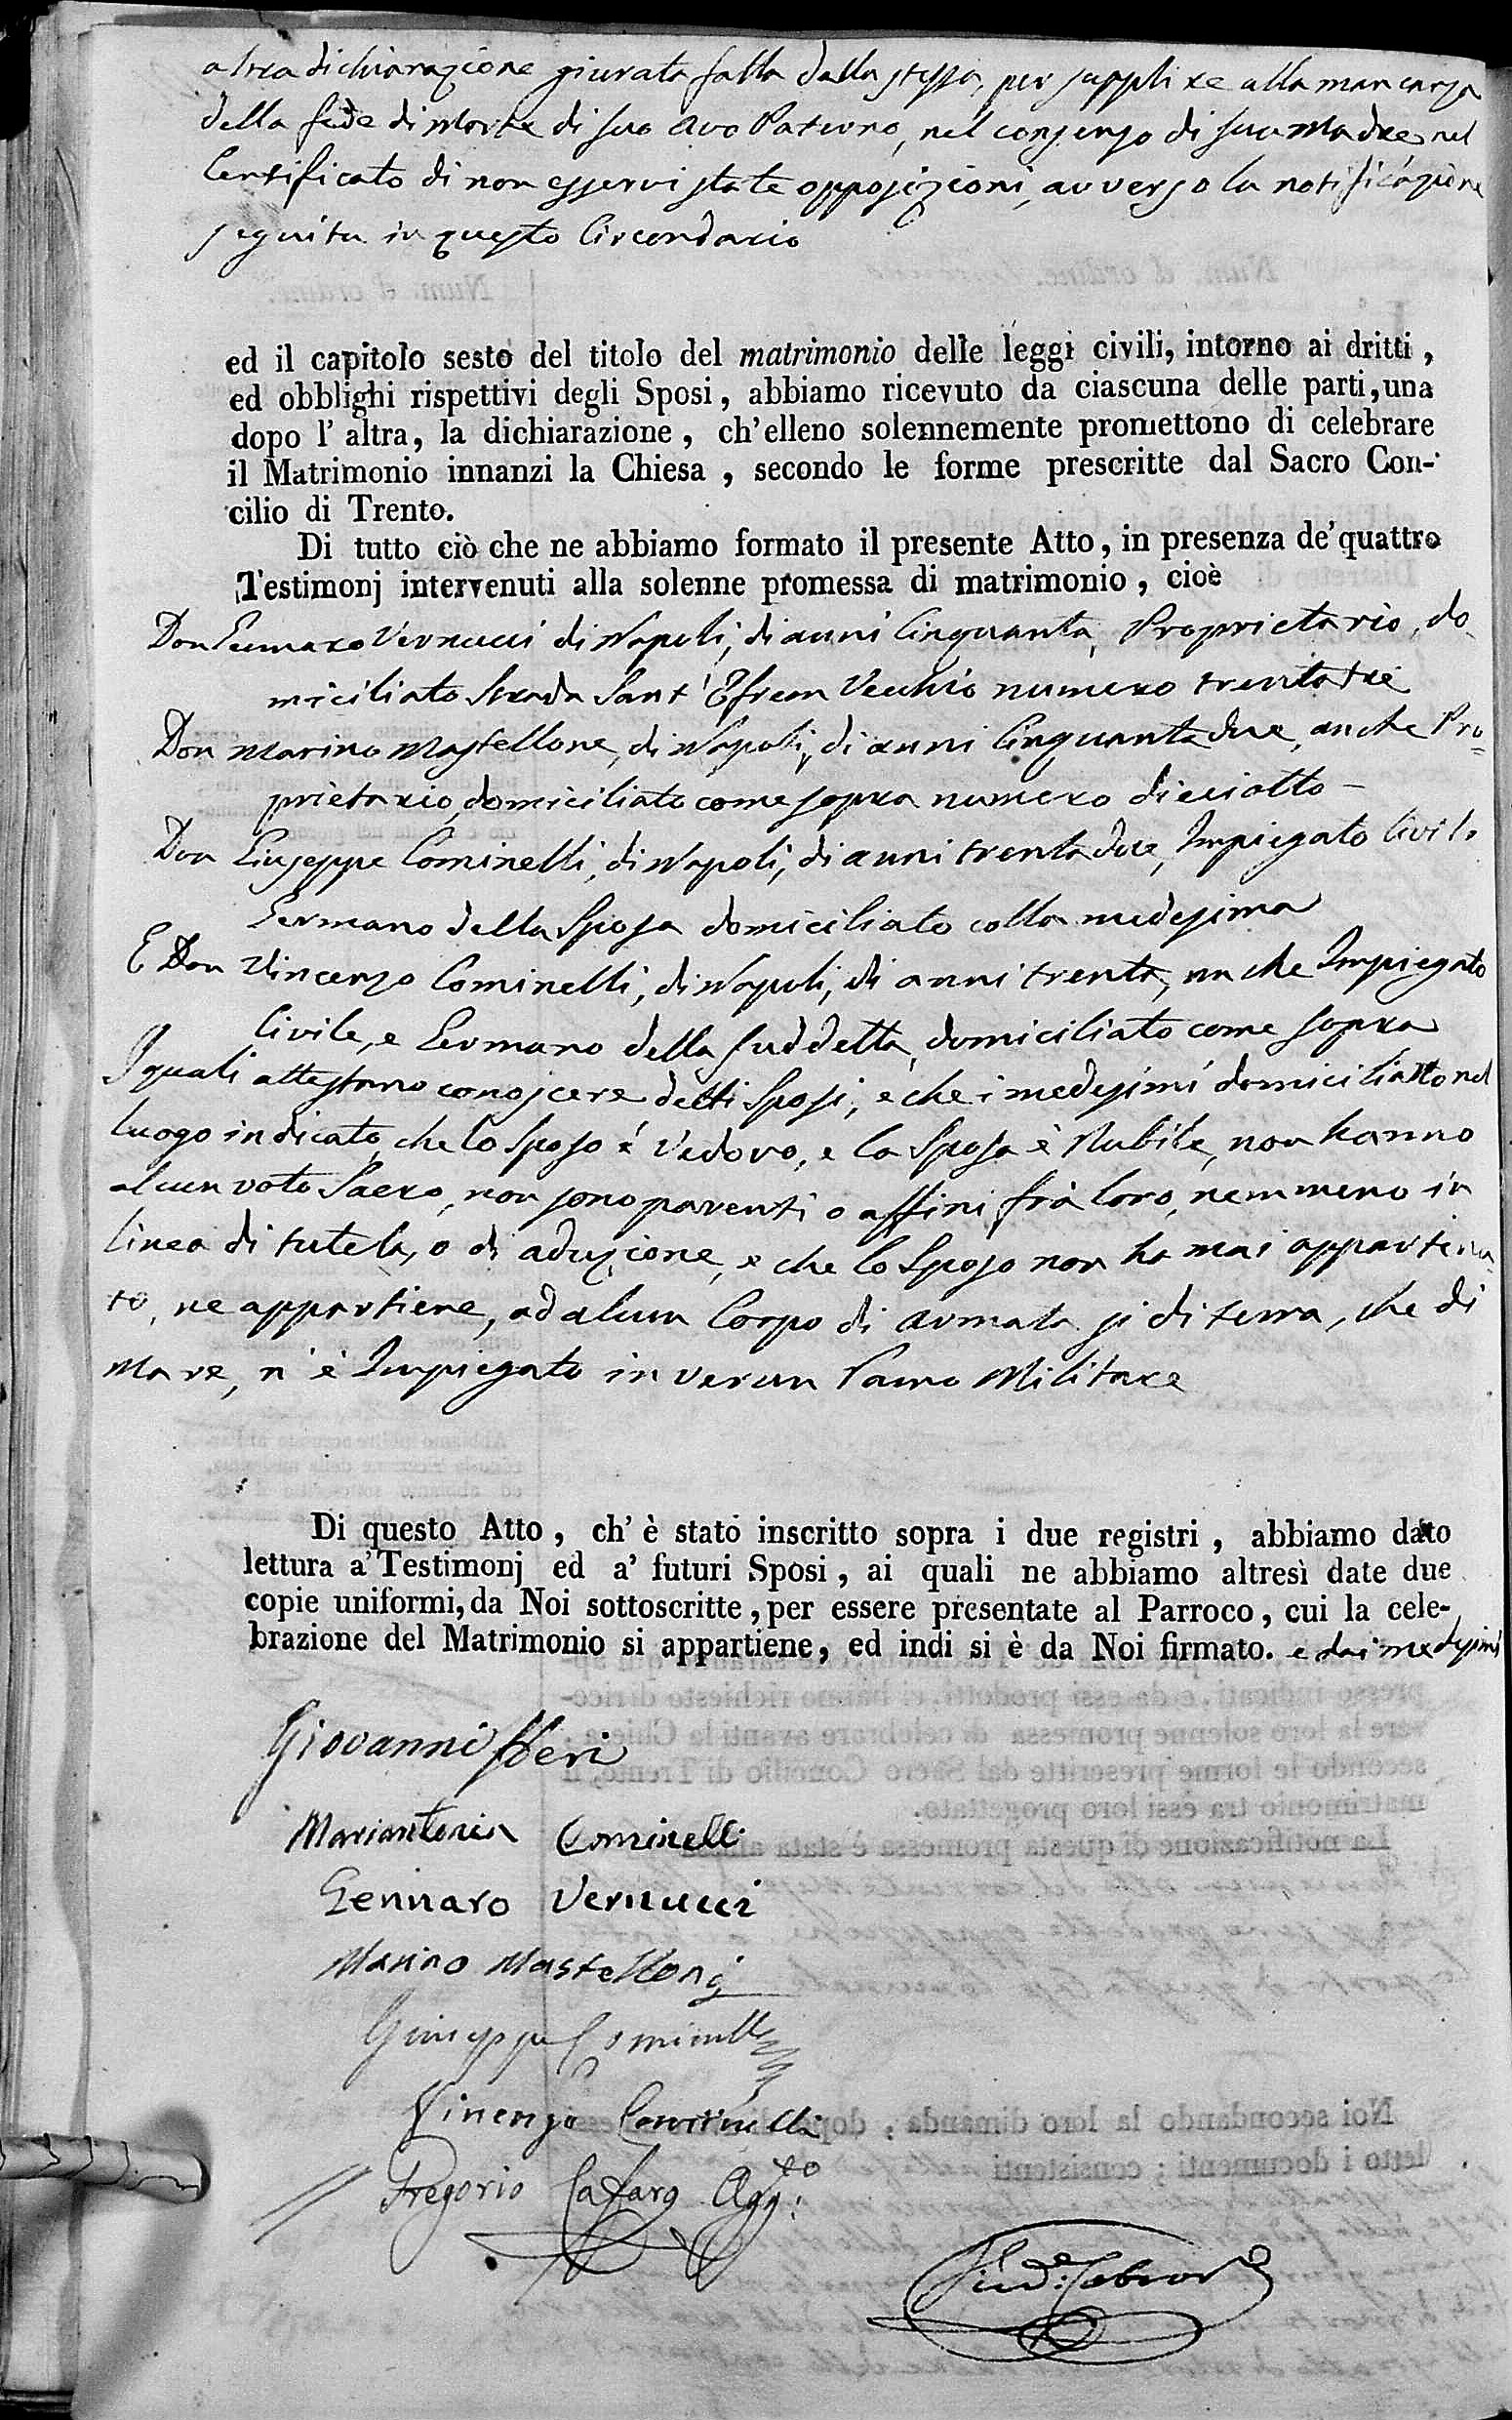 altra dichiarazione giurata fatta dalla stessa, per supplire alla mancanza
della fede di Morte di suo Avo Paterno, nel consenso di sua Madre, nel
Certificato di non esservi state opposizioni, avverso la notificazione
seguita in questo Circondario
ed il capitolo sesto del titolo del matrimonio delle leggi civili, intorno ai dritti ,
ed obblighi rispettivi degli Sposi , abbiamo ricevuto da ciascuna delle parti, una
dopo l' altra, la dichiarazione , ch'elleno solennemente promettono di celebrare
il Matrimonio innanzi la Chiesa , secondo le forme prescritte dal Sacro Con-
cilio di Trento.
Di tutto ciò che ne abbiamo formato il presente Atto, in presenza de' quattro
Testimonj intervenuti alla solenne promessa di matrimonio , cioè
Don Gennaro Vernucci di Napoli, di anni Cinquanta, Proprietario, do
miciliato Strada Sant' Efrem Vecchio numero trentatre
Don Marino Mastellone, di Napoli, di anni Cinquantadue, anche Pro=
prietario, domiciliato come sopra numero dieciotto –
Don Giuseppe Cominelli, di Napoli, di anni trentadue, Impiegato Civile
Germano della Sposa domiciliato colla medesima
E Don Vincenzo Cominelli, di Napoli, di anni trenta, anche Impiegato
Civile, e Germano della suddetta, domiciliato come sopra
I quali attestano conoscere detti Sposi, e che i medesimi domiciliano nel
luogo indicato, che lo Sposo è Vedovo, e la Sposa è Nubile, non hanno
alcun voto Sacro, non sono parenti o affini frà loro, nemmeno in
linea di tutela, o di adozione, e che lo Sposo non ha mai appartenu-
to, ne appartiene, ad alcun Corpo di armata si di terra, che di
Mare, n' è Impiegato in verun Ramo Militare
Di questo Atto , ch' è stato inscritto sopra i due registri , abbiamo dato
lettura a' Testimonj ed a' futuri Sposi , ai quali ne abbiamo altresì date due
copie uniformi, da Noi sottoscritte , per essere presentate al Parroco , cui la cele-
brazione del Matrimonio si appartiene, ed indi si è da Noi firmato. e dai medesimi
Giovanni
Mariantonia Cominelli
Gennaro Vernucci
Marino Mastelloni
Giuseppe Cominelli
Vincenzo Cominelli
Gregorio Cafaro Agg.to